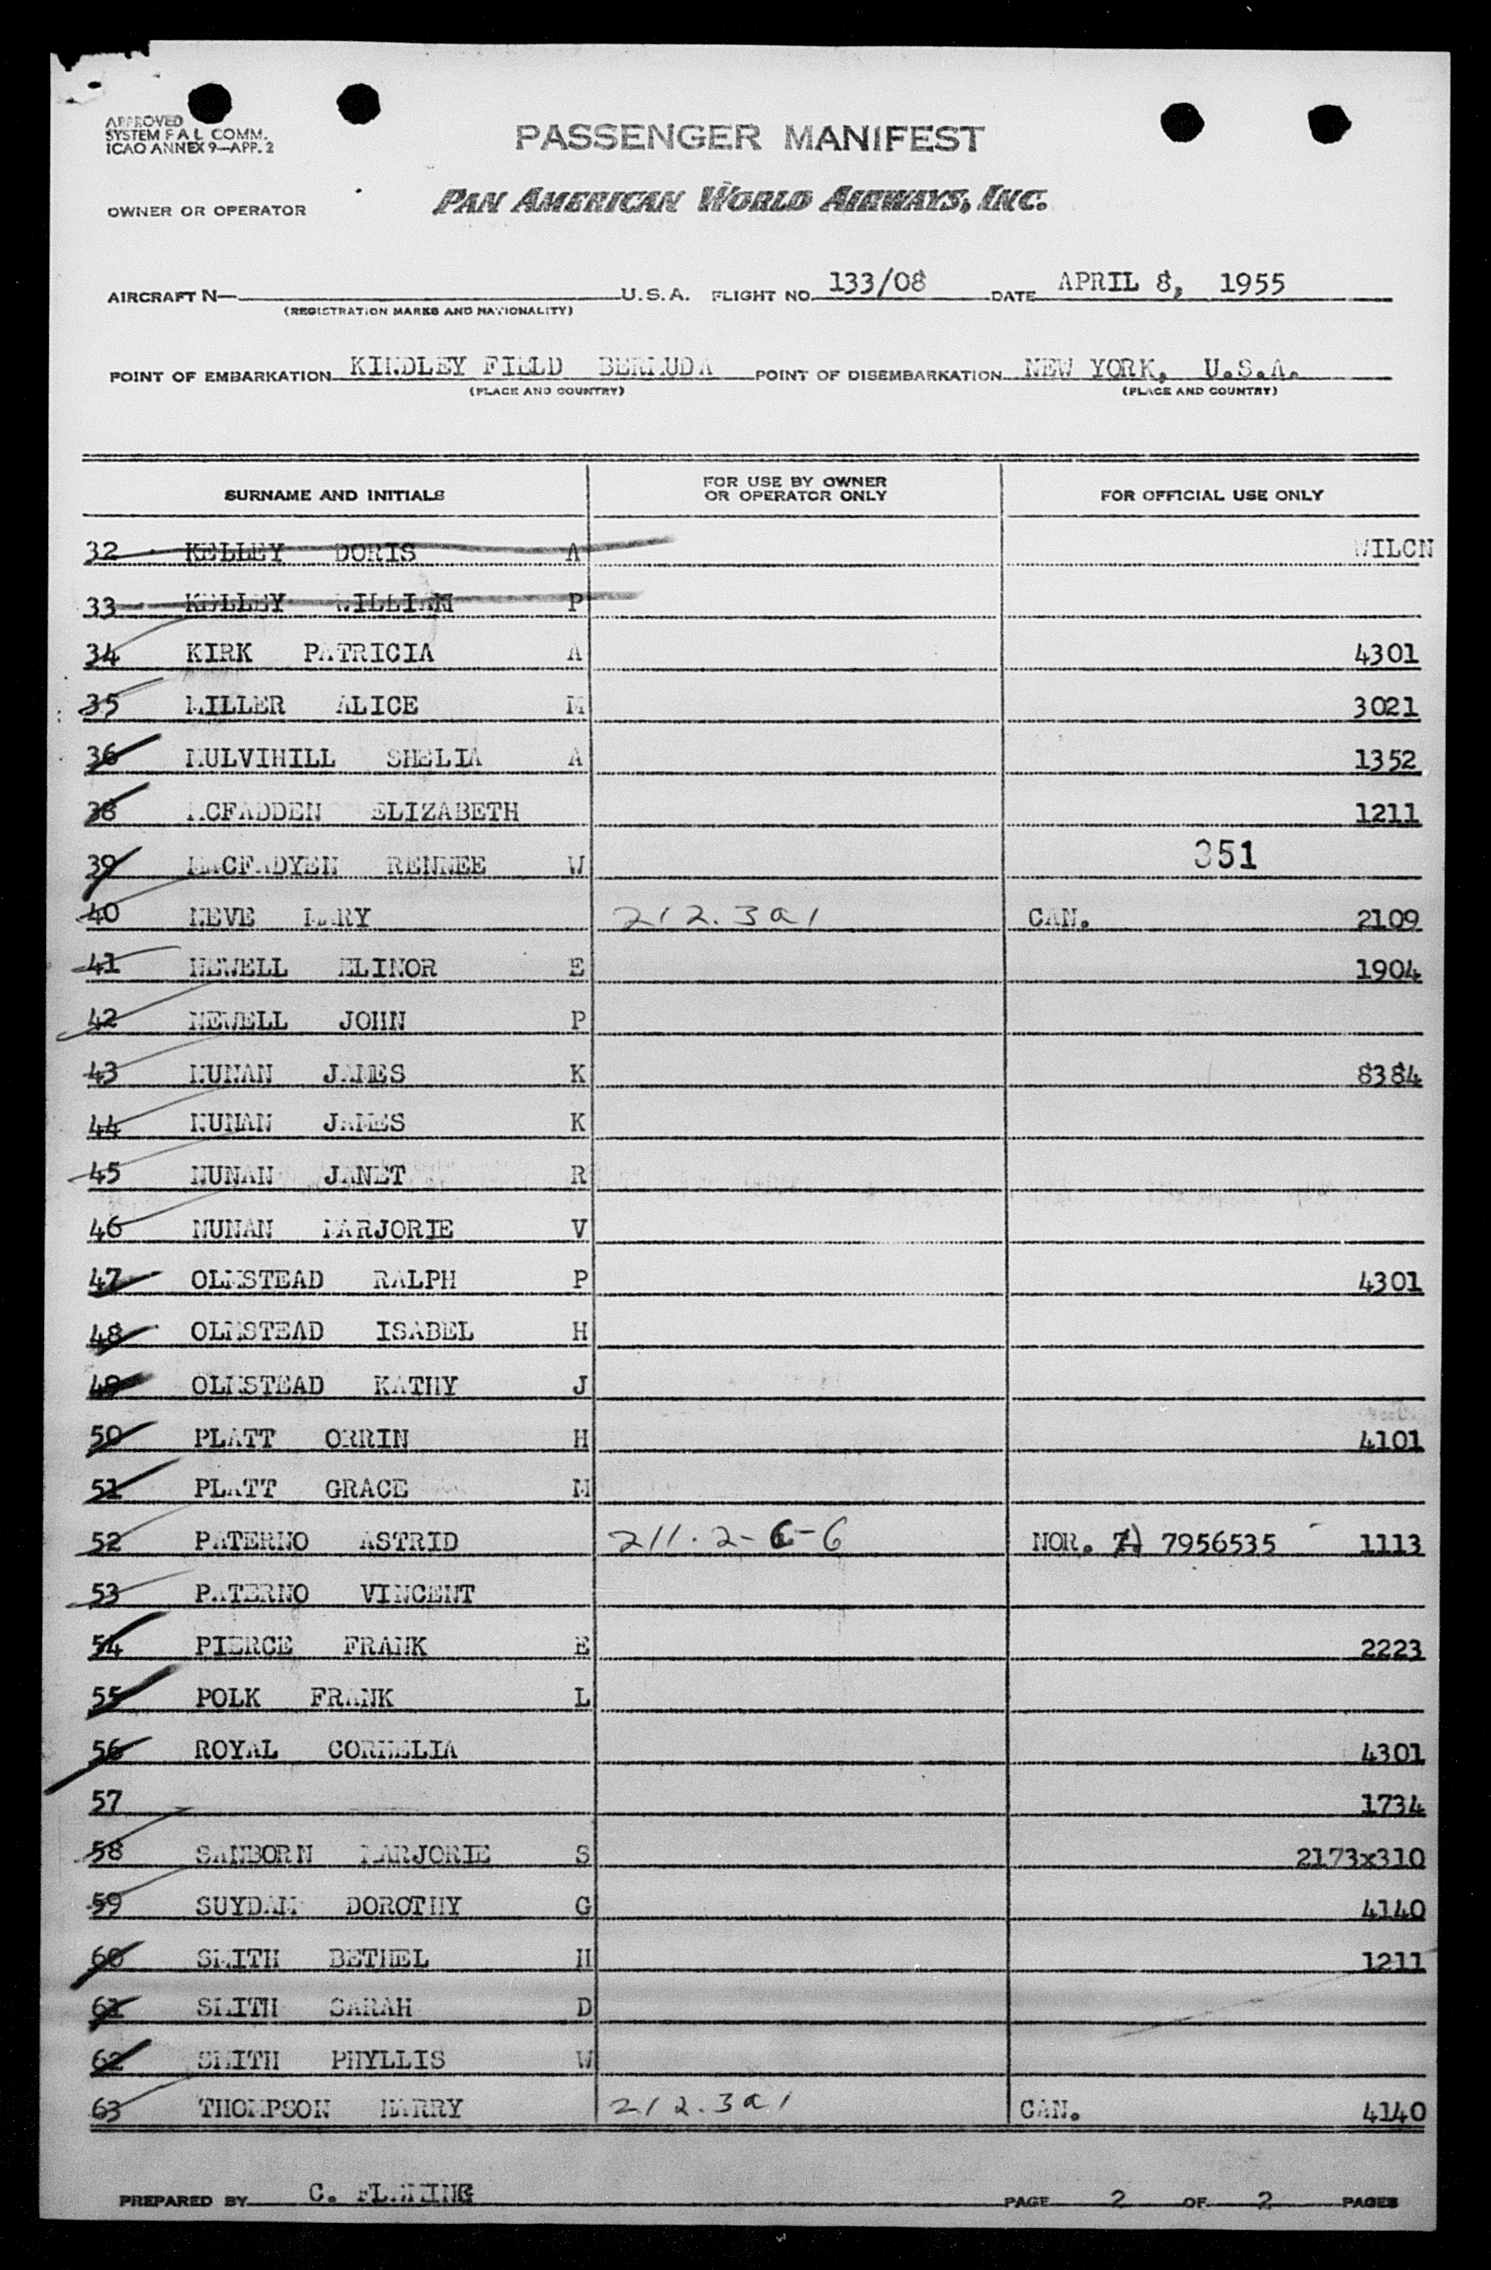 APPROVED
SYSTEM F A L COMM.
ICAO ANNEX 9—APP. 2
PASSENGER MANIFEST
OWNER OR OPERATOR PAN AMERICAN WORLD AIRWAYS, INC.
AIRCRAFT N— U.S.A. FLIGHT NO. 133/08 DATE APRIL 8, 1955
(REGISTRATION MARKS AND NATIONALITY)
POINT OF EMBARKATION KINDLEY FIELD BERMUDA POINT OF DISEMBARKATION NEW YORK, U.S.A.
(PLACE AND COUNTRY) (PLACE AND COUNTRY)
SURNAME AND INITIALS FOR USE BY OWNER OR OPERATOR ONLY FOR OFFICIAL USE ONLY
32 KELLEY DORIS A WILCN
33 KELLEY WILLIAM P
34 KIRK PATRICIA A 4301
35 MILLER ALICE M 3021
36 MULVIHILL SHELIA A 1352
38 MCFADDEN ELIZABETH 1211
39 MACFADYEN RENNEE W 351
40 NEVE MARY 212.3a1 CAN. 2109
41 NEWELL ELINOR E 1904
42 NEWELL JOHN P
43 NUNAN JAMES K 8384
44 NUNAN JAMES K
45 NUNAN JANET R
46 NUNAN MARJORIE V
47 OLMSTEAD RALPH P 4301
48 OLMSTEAD ISABEL H
49 OLMSTEAD KATHY J
50 PLATT ORRIN H 4101
51 PLATT GRACE M
52 PATERNO ASTRID 211.2-6-6 NOR. 7956535 1113
53 PATERNO VINCENT
54 PIERCE FRANK E 2223
55 POLK FRANK L
56 ROYAL CORNELIA 4301
57 1734
58 SANBORN MARJORIE S 2173x310
59 SUYDAM DOROTHY G 4140
60 SMITH BETHEL H 1211
61 SMITH SARAH D
62 SMITH PHYLLIS W
63 THOMPSON HARRY 212.3a1 CAN. 4140
PREPARED BY C. FLEMING PAGE 2 OF 2 PAGES